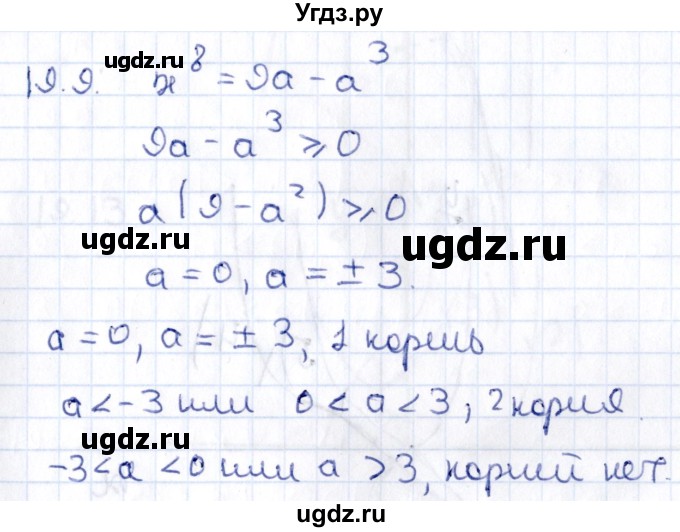 Угдз.ру
19.9. x⁸ = 9a - a³
9a - a³ ⩾ 0
a(9 - a²) ⩾ 0
a = 0, a = ± 3.
a = 0, a = ± 3, 1 корень
a < -3 или 0 < a < 3, 2 корня.
-3 < a < 0 или a > 3, корней нет.
ugdz.ru
ugdz.ru
ugdz.ru
ugdz.ru
ugdz.ru
ugdz.ru